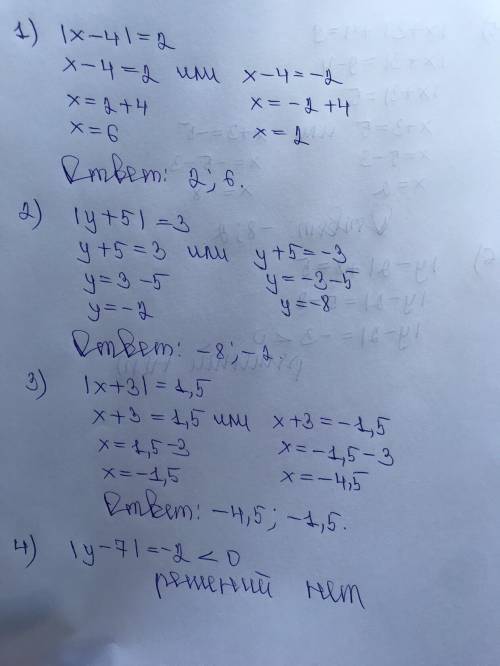 1) |x-4|=2
x-4=2 или x-4=-2
x=2+4 x=-2+4
x=6 x=2
Ответ: 2; 6.
2) |y+5|=3
y+5=3 или y+5=-3
y=3-5 y=-3-5
y=-2 y=-8
Ответ: -8; -2
3) |x+3|=1,5
x+3=1,5 или x+3=-1,5
x=1,5-3 x=-1,5-3
x=-1,5 x=-4,5
Ответ: -4,5; -1,5.
4) |y-7|=-2<0
решений нет